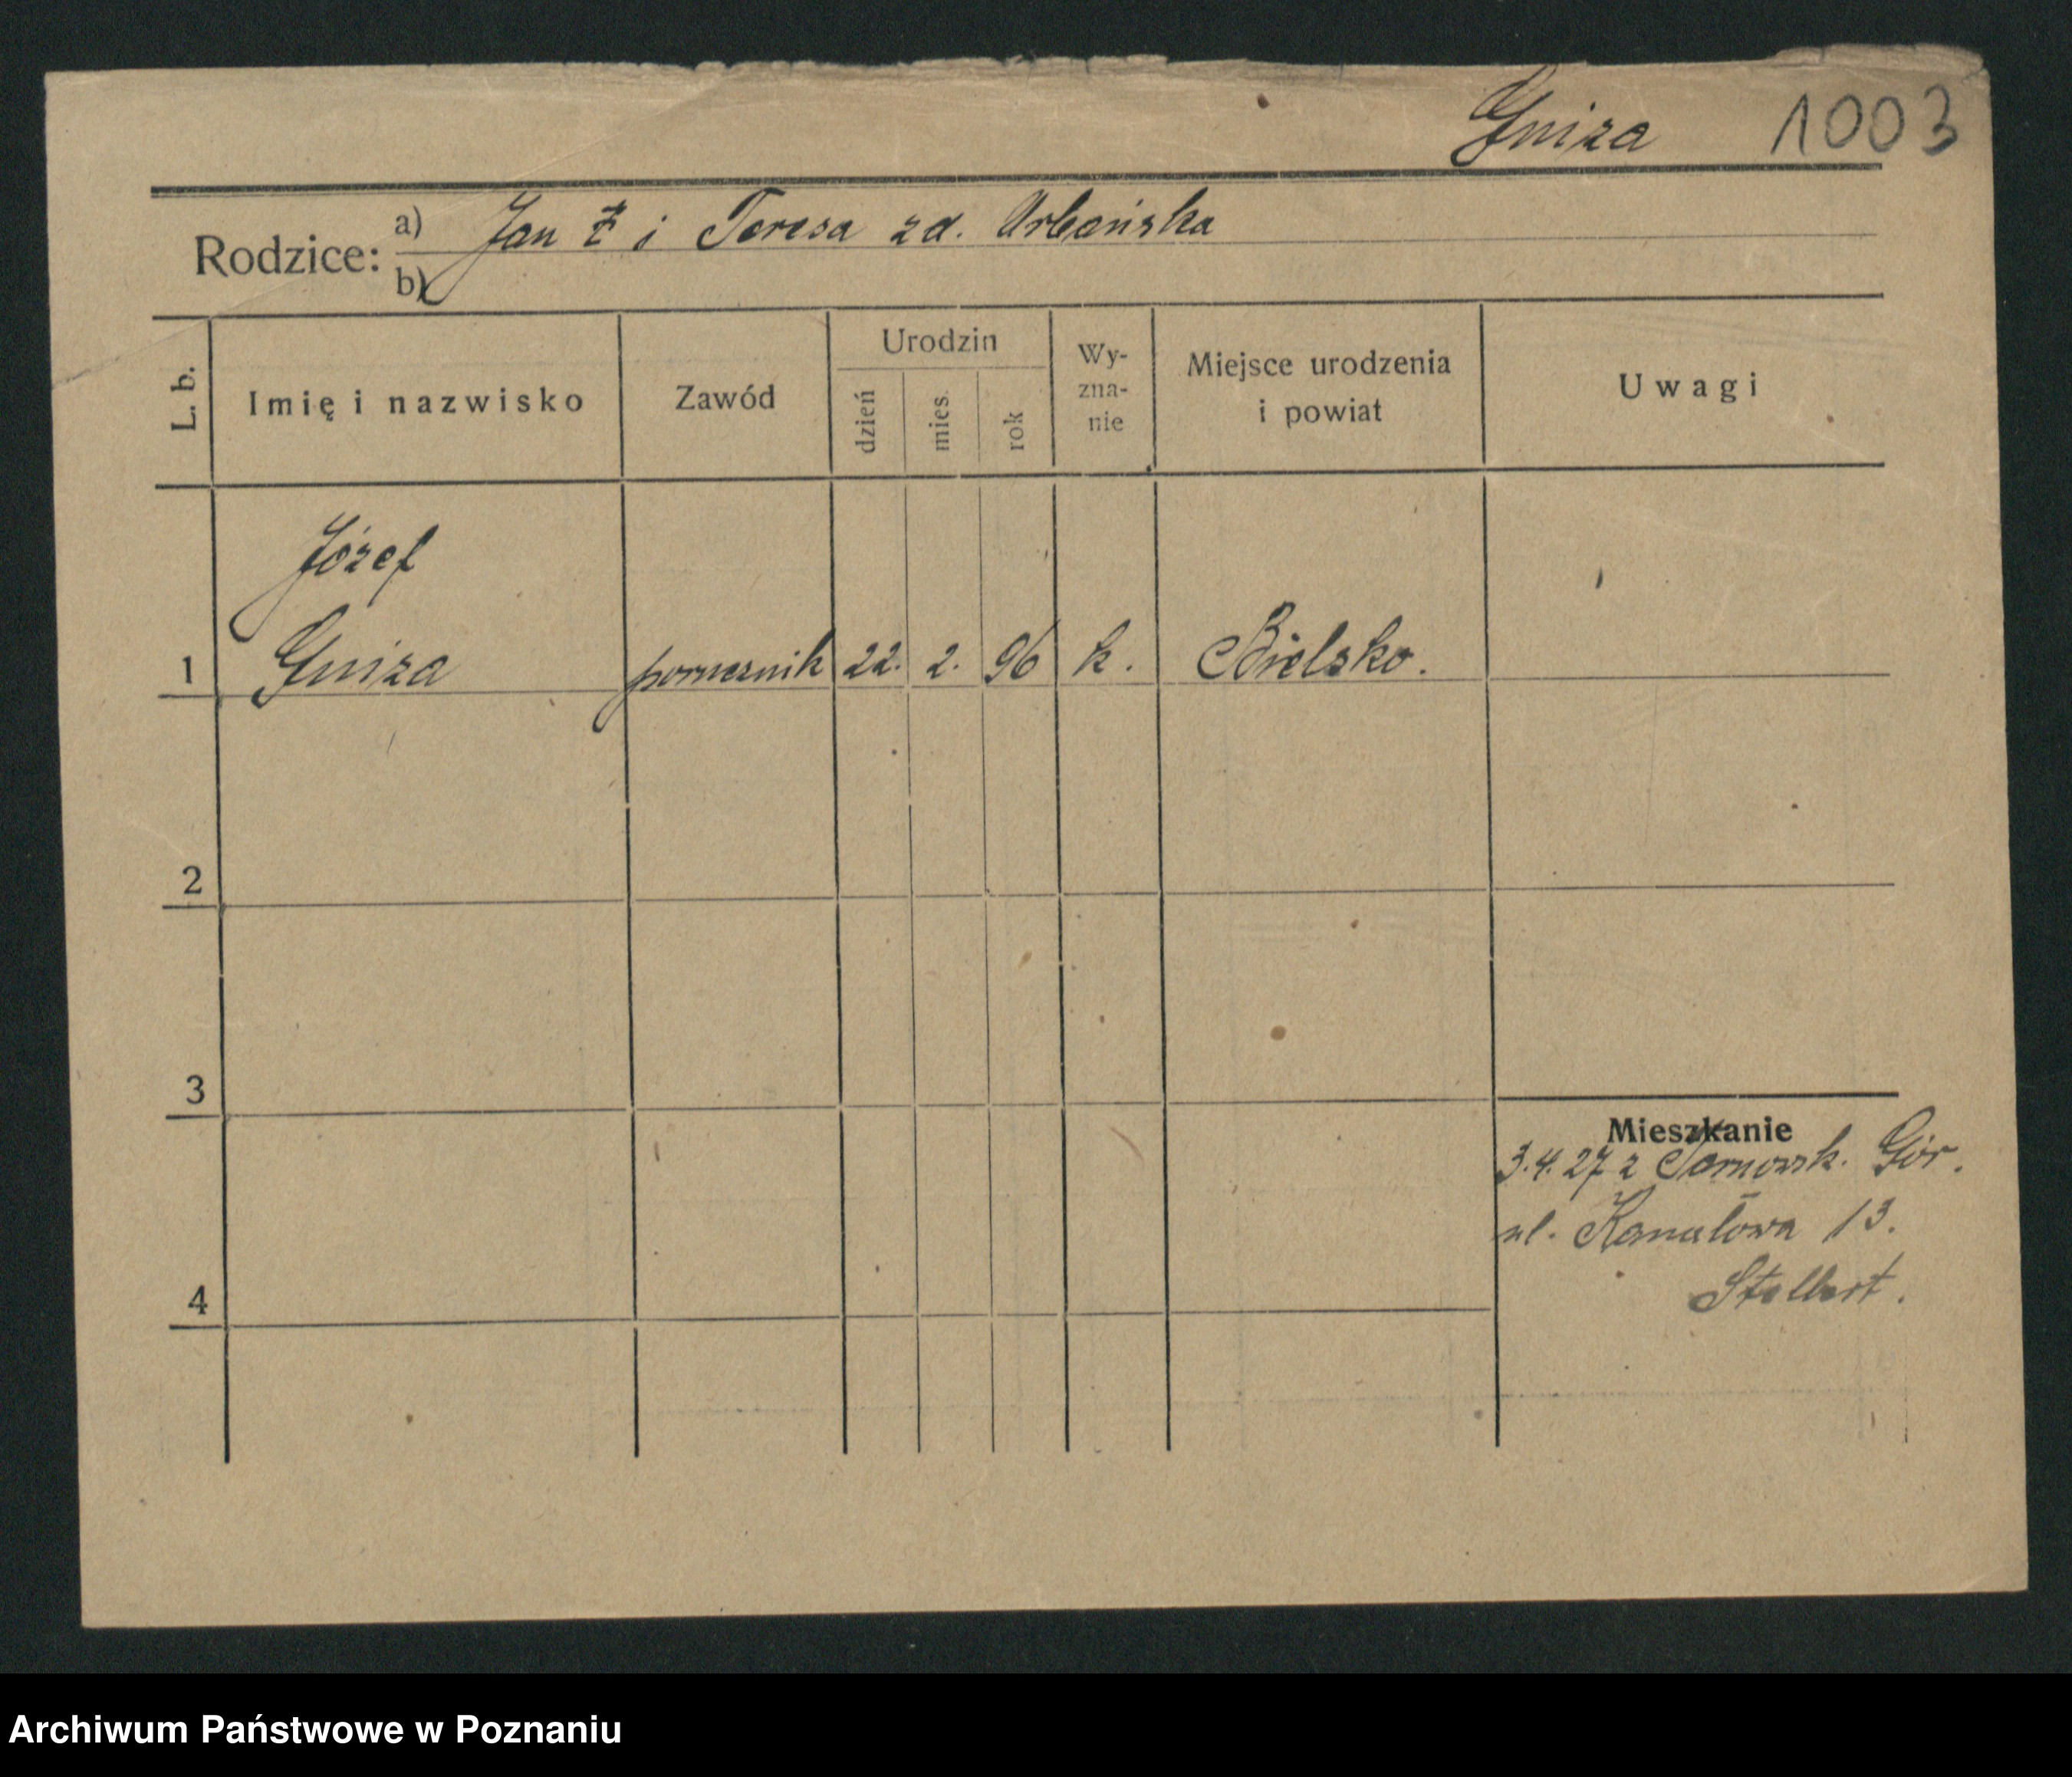 Gniza 1003
Rodzice: a) Jan ‡ i Teresa zd. Urbańska
b)
L. b. Imię i nazwisko Zawód Urodzin dzień mies. rok Wy-zna-nie Miejsce urodzenia i powiat Uwagi
Józef
1 Gniza pomocnik 22. 2. 96 k. Bielsko.
2
3
Mieszkanie
3.4.27 z Tarnowsk. Gór.
ul. Kanałowa 13.
4
Archiwum Państwowe w Poznaniu